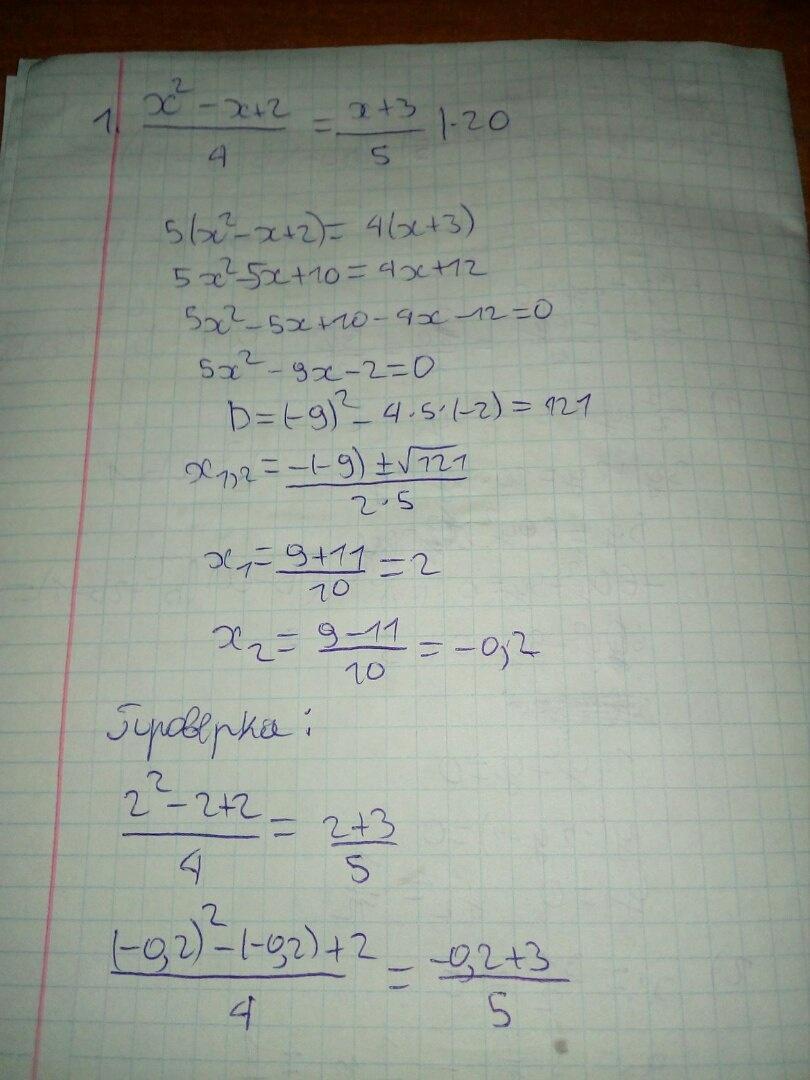 1. (x² - x + 2)/4 = (x + 3)/5 |·20
5(x² - x + 2) = 4(x + 3)
5x² - 5x + 10 = 4x + 12
5x² - 5x + 10 - 4x - 12 = 0
5x² - 9x - 2 = 0
D = (-9)² - 4·5·(-2) = 121
x₁,₂ = (-(-9) ± √121)/(2·5)
x₁ = (9 + 11)/10 = 2
x₂ = (9 - 11)/10 = -0,2
Проверка:
(2² - 2 + 2)/4 = (2 + 3)/5
((-0,2)² - (-0,2) + 2)/4 = (-0,2 + 3)/5